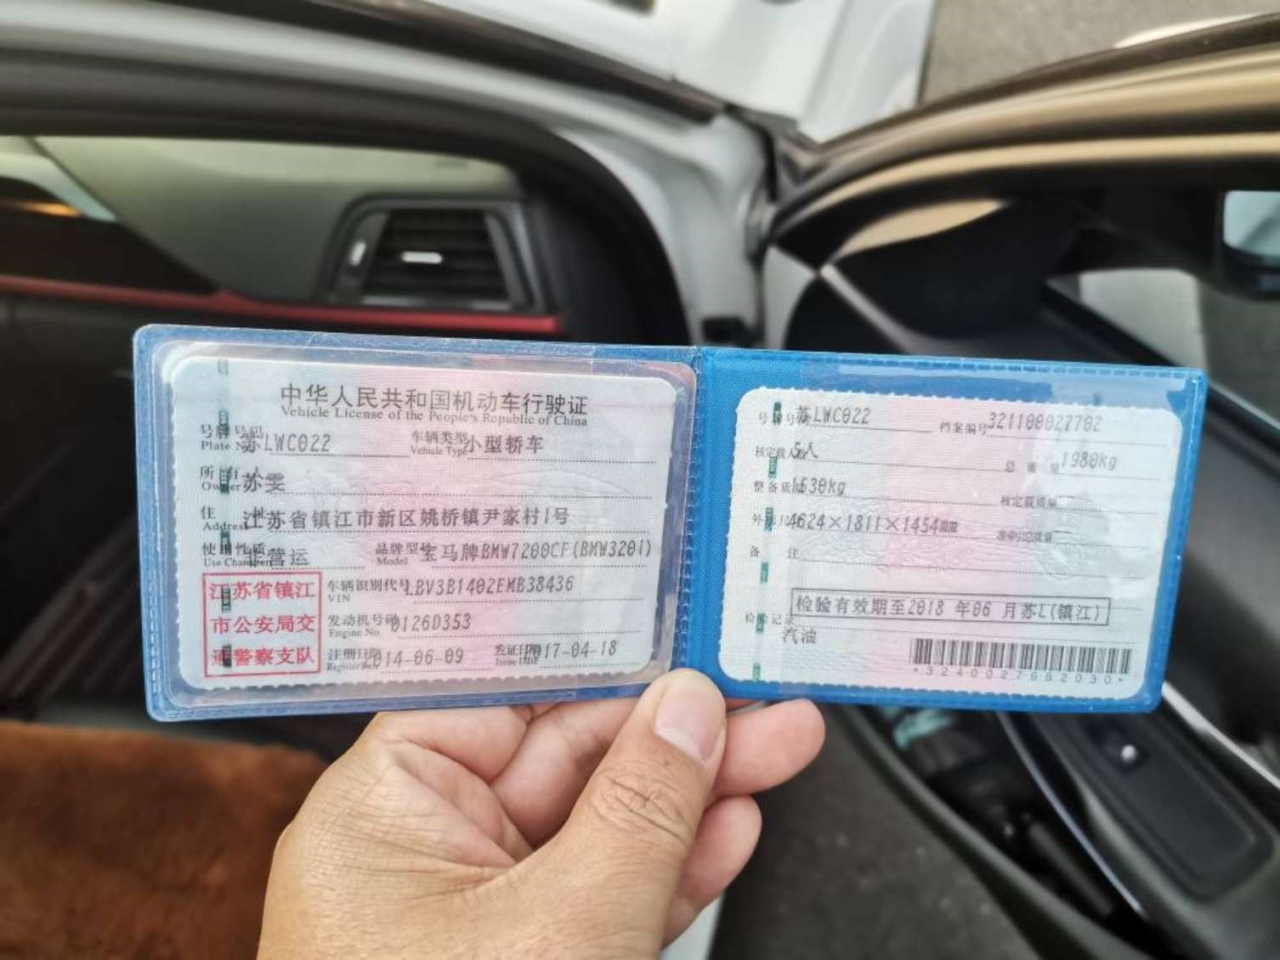 中华人民共和国机动车行驶证
Vehicle License of the People's Republic of China
号牌号码 苏LWC022 车辆类型 小型轿车
Plate No. Vehicle Type
所有人 苏雯
Owner
住址 江苏省镇江市新区姚桥镇尹家村1号
Address
使用性质 非营运 品牌型号 宝马牌BMW7200CF(BMW320i)
Use Character Model
江苏省镇江
市公安局交
通警察支队
车辆识别代号 LBV3B1402EMB38436
VIN
发动机号码 0126D353
Engine No.
注册日期 2014-06-09 发证日期 2017-04-18
Register Date Issue Date
号牌号码 苏LWC022 档案编号 321100027702
核定载人 5人 总质量 1980kg
整备质量 1530kg 核定载质量
外廓尺寸 4624×1811×1454mm 准牵引总质量
备注
检验有效期至2018 年06 月苏L(镇江)
检验记录
汽油
*3240027662030*